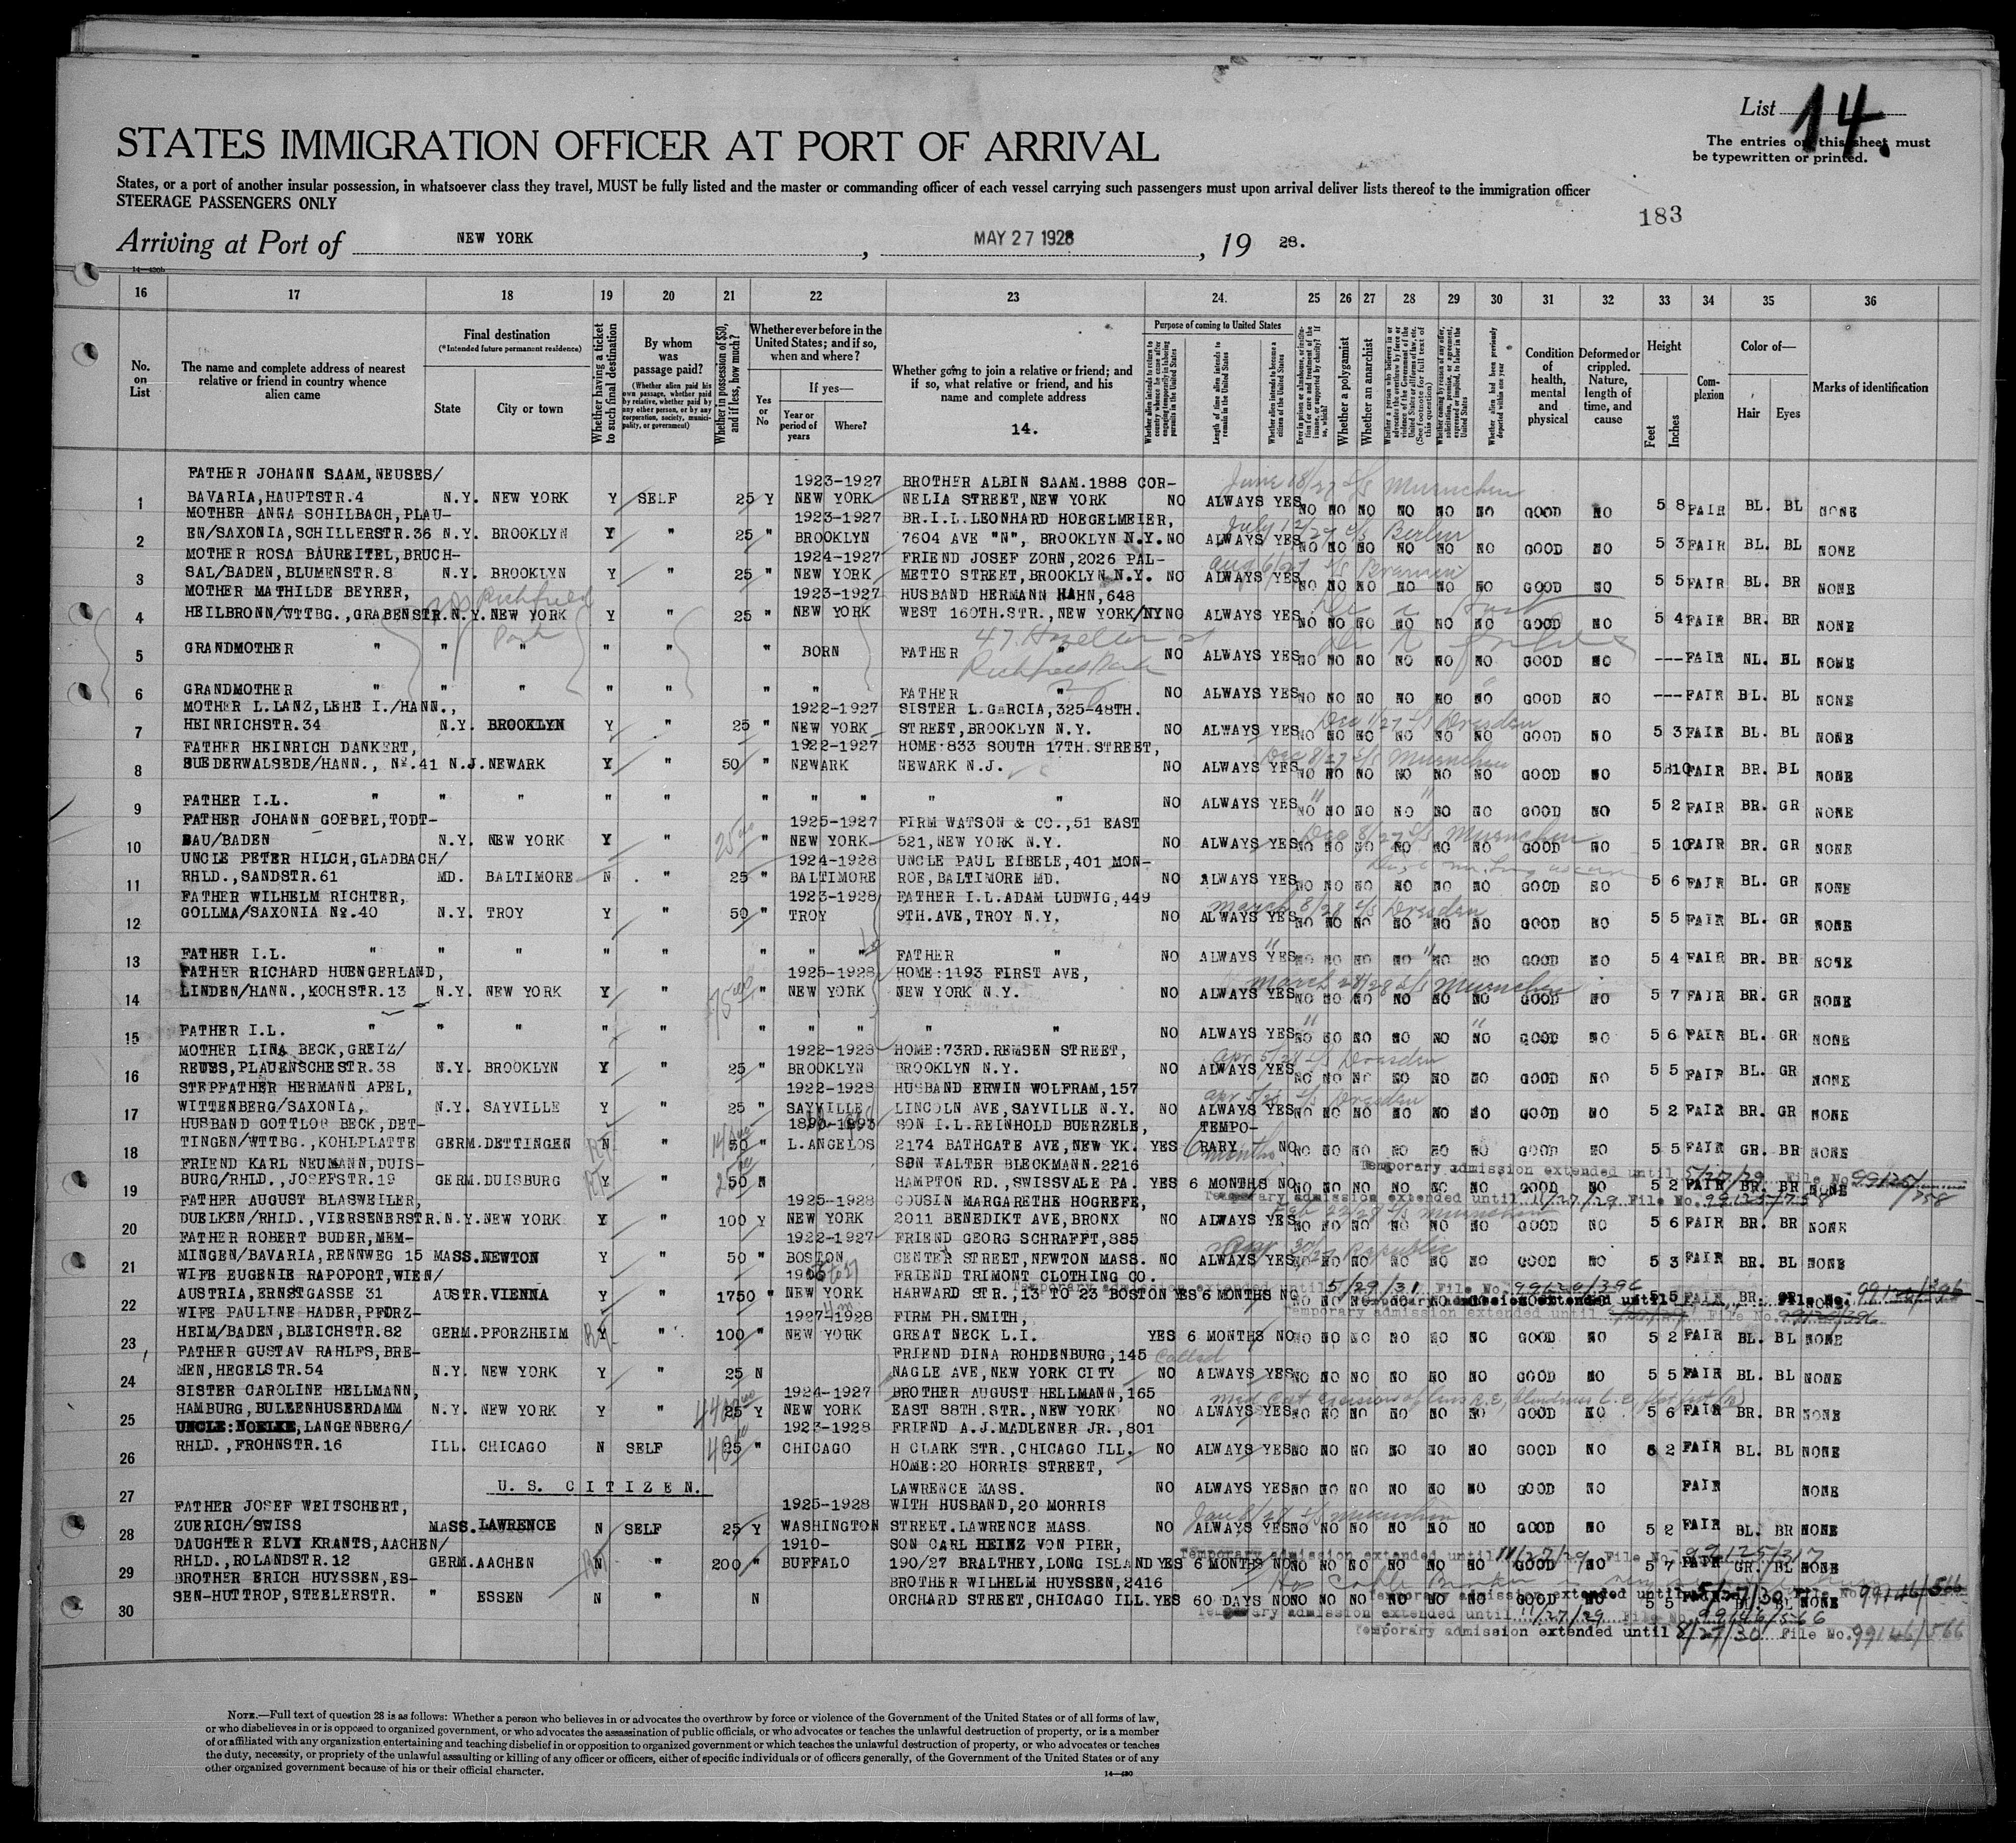 List 14.
STATES IMMIGRATION OFFICER AT PORT OF ARRIVAL
The entries on this sheet must
be typewritten or printed.
States, or a port of another insular possession, in whatsoever class they travel, MUST be fully listed and the master or commanding officer of each vessel carrying such passengers must upon arrival deliver lists thereof to the immigration officer
STEERAGE PASSENGERS ONLY
183
Arriving at Port of NEW YORK, MAY 27 1928, 19 28.
14—430b
16 17 18 19 20 21 22 23 24. 25 26 27 28 29 30 31 32 33 34 35 36
No. on List
The name and complete address of nearest relative or friend in country whence alien came
Final destination
(*Intended future permanent residence)
State
City or town
Whether having a ticket to such final destination
By whom was passage paid?
(Whether alien paid his own passage, whether paid by relative, whether paid by any other person, or by any corporation, society, municipality, or government)
Whether in possession of $50, and if less, how much?
Whether ever before in the United States; and if so, when and where?
Yes or No
If yes—
Year or period of years
Where?
Whether going to join a relative or friend; and if so, what relative or friend, and his name and complete address
14.
Purpose of coming to United States
Whether alien intends to return to country whence he came after engaging temporarily in laboring pursuits in the United States
Length of time alien intends to remain in the United States
Whether alien intends to become a citizen of the United States
Ever in prison or almshouse, or institution for care and treatment of the insane, or supported by charity? If so, which?
Whether a polygamist
Whether an anarchist
Whether a person who believes in or advocates the overthrow by force or violence of the Government of the United States or all forms of law, etc. (See footnote for full text of this question)
Whether coming by reason of any offer, solicitation, promise, or agreement, expressed or implied, to labor in the United States
Whether alien had been previously deported within one year
Condition of health, mental and physical
Deformed or crippled. Nature, length of time, and cause
Height
Feet
Inches
Complexion
Color of—
Hair
Eyes
Marks of identification
FATHER JOHANN SAAM, NEUSES/ 1923-1927 BROTHER ALBIN SAAM. 1888 COR- June 18/27 s/s Muenchen
1 BAVARIA, HAUPTSTR.4 N.Y. NEW YORK Y SELF 25 Y NEW YORK NELIA STREET, NEW YORK NO ALWAYS YES NO NO NO NO NO NO GOOD NO 5 8 FAIR BL. BL NONE
MOTHER ANNA SCHILBACH, PLAU- 1923-1927 BR.I.L.LEONHARD HOEGELMEIER, July 12/27 s/s Berlin
2 EN/SAXONIA, SCHILLERSTR.36 N.Y. BROOKLYN Y " 25 " BROOKLYN 7604 AVE "N", BROOKLYN N.Y. NO ALWAYS YES NO NO NO NO NO NO GOOD NO 5 3 FAIR BL. BL NONE
MOTHER ROSA BAUREITEL, BRUCH- 1924-1927 FRIEND JOSEF ZORN, 2026 PAL- Aug 6/27 s/s Bremen
3 SAL/BADEN, BLUMENSTR.8 N.Y. BROOKLYN Y " 25 " NEW YORK METTO STREET, BROOKLYN N.Y. NO ALWAYS YES NO NO NO NO NO NO GOOD NO 5 5 FAIR BL. BR NONE
MOTHER MATHILDE BEYRER, Richfield Park 1923-1927 HUSBAND HERMANN HAHN, 648
4 HEILBRONN/WTTBG., GRABENSTR. N.Y. NEW YORK Y " 25 " NEW YORK WEST 160TH.STR., NEW YORK/NY NO ALWAYS YES NO NO NO NO NO NO GOOD NO 5 4 FAIR BR. BR NONE
5 GRANDMOTHER " " " " " " BORN FATHER " NO ALWAYS YES NO NO NO NO NO NO GOOD NO --- FAIR NL. BL NONE
Richfield Park
6 GRANDMOTHER " " " " " " " FATHER " NO ALWAYS YES NO NO NO NO NO NO GOOD NO --- FAIR BL. BL NONE
MOTHER L.LANZ, LEHE I./HANN., 1922-1927 SISTER L.GARCIA, 325-48TH. Dec 1/27 s/s Dresden
7 HEINRICHSTR.34 N.Y. BROOKLYN Y " 25 " NEW YORK STREET, BROOKLYN N.Y. NO ALWAYS YES NO NO NO NO NO NO GOOD NO 5 3 FAIR BL. BL NONE
FATHER HEINRICH DANKERT, 1922-1927 HOME:833 SOUTH 17TH.STREET, Dec 8/27 s/s Muenchen
8 SUEDERWALSEDE/HANN., No.41 N.J. NEWARK Y " 50 " NEWARK NEWARK N.J. NO ALWAYS YES NO NO NO NO NO NO GOOD NO 5 10 FAIR BR. BL NONE
9 FATHER I.L. " " " " " " " " " " NO ALWAYS YES NO NO NO NO NO NO GOOD NO 5 2 FAIR BR. GR NONE
FATHER JOHANN GOEBEL, TODT- 1925-1927 FIRM WATSON & CO., 51 EAST Dec 8/27 s/s Muenchen
10 NAU/BADEN N.Y. NEW YORK Y " 25 " NEW YORK 521, NEW YORK N.Y. NO ALWAYS YES NO NO NO NO NO NO GOOD NO 5 10 FAIR BR. GR NONE
UNCLE PETER HILCH, GLADBACH/ 1924-1928 UNCLE PAUL EIBELE, 401 MON-
11 RHLD., SANDSTR.61 MD. BALTIMORE N " 25 " BALTIMORE ROE, BALTIMORE MD. NO ALWAYS YES NO NO NO NO NO NO GOOD NO 5 6 FAIR BL. GR NONE
FATHER WILHELM RICHTER, 1923-1928 FATHER I.L.ADAM LUDWIG, 449 March 8/28 s/s Dresden
12 GOLLMA/SAXONIA No.40 N.Y. TROY Y " 50 " TROY 9TH.AVE, TROY N.Y. NO ALWAYS YES NO NO NO NO NO NO GOOD NO 5 5 FAIR BL. GR NONE
13 FATHER I.L. " " " " " " " " FATHER " NO ALWAYS YES NO NO NO NO NO NO GOOD NO 5 4 FAIR BR. BR NONE
FATHER RICHARD HUENGERLAND, 1925-1928 HOME:1193 FIRST AVE, March 28/28 s/s Muenchen
14 LINDEN/HANN., KOCHSTR.13 N.Y. NEW YORK Y " 75 " NEW YORK NEW YORK N.Y. NO ALWAYS YES NO NO NO NO NO NO GOOD NO 5 7 FAIR BR. GR NONE
15 FATHER I.L. " " " " " " " " " " NO ALWAYS YES NO NO NO NO NO NO GOOD NO 5 6 FAIR BL. GR NONE
MOTHER LINA BECK, GREIZ/ 1922-1928 HOME:73RD.REMSEN STREET, Apr 5/28 s/s Dresden
16 REUSS, PLAUENSCHESTR.38 N.Y. BROOKLYN Y " 25 " BROOKLYN BROOKLYN N.Y. NO ALWAYS YES NO NO NO NO NO NO GOOD NO 5 5 FAIR BL. GR NONE
STEPFATHER HERMANN APEL, 1922-1928 HUSBAND ERWIN WOLFRAM, 157 Apr 5/28 s/s Dresden
17 WITTENBERG/SAXONIA, N.Y. SAYVILLE Y " 25 " SAYVILLE LINCOLN AVE, SAYVILLE N.Y. NO ALWAYS YES NO NO NO NO NO NO GOOD NO 5 2 FAIR BR. GR NONE
HUSBAND GOTTLOB BECK, DET- 1890-1893 SON I.L.REINHOLD BUERZELE, TEMPO-
18 TINGEN/WTTBG., KOHLPLATTE GERM. DETTINGEN N " 50 " L.ANGELOS 2174 BATHGATE AVE, NEW YK. YES RARY 6 months NO NO NO NO NO NO NO GOOD NO 5 5 FAIR GR. BR NONE
FRIEND KARL NEUMANN, DUIS- SON WALTER BLECKMANN.2216 Temporary admission extended until 5/27/29 File No. 99125/758
19 BURG/RHLD., JOSEFSTR.19 GERM. DUISBURG Y " 50 N HAMPTON RD., SWISSVALE PA. YES 6 MONTHS NO NO NO NO NO NO NO GOOD NO 5 2 FAIR BR. BR NONE
Temporary admission extended until 11/27/29 File No. 99125/758
FATHER AUGUST BLASWEILER, 1925-1928 COUSIN MARGARETHE HOGREFE, Feb 22/28 s/s Muenchen
20 DUELKEN/RHLD., VIERSENERSTR. N.Y. NEW YORK Y " 100 Y NEW YORK 2011 BENEDIKT AVE, BRONX NO ALWAYS YES NO NO NO NO NO NO GOOD NO 5 6 FAIR BR. BR NONE
FATHER ROBERT BUDER, MEM- 1922-1927 FRIEND GEORG SCHRAFFT, 885 Republic
21 MINGEN/BAVARIA, RENNWEG 15 MASS. NEWTON Y " 50 " BOSTON CENTER STREET, NEWTON MASS. NO ALWAYS YES NO NO NO NO NO NO GOOD NO 5 3 FAIR BR. BL NONE
WIFE EUGENIE RAPOPORT, WIEN/ FRIEND TRIMONT CLOTHING CO. Temporary admission extended until 5/29/31 File No. 99120/396
22 AUSTRIA, ERNSTGASSE 31 AUSTR. VIENNA Y " 1750 " NEW YORK HARWARD STR., 13 TO 23 BOSTON YES 6 MONTHS NO NO NO 5 5 FAIR BR. NONE
Temporary admission extended until File No. 99120/396
Temporary admission extended until File No. 99120/396
WIFE PAULINE HADER, PFORZ- 1927-1928 FIRM PH.SMITH,
23 HEIM/BADEN, BLEICHSTR.82 GERM. PFORZHEIM Y " 100 " NEW YORK GREAT NECK L.I. YES 6 MONTHS NO NO NO NO NO NO NO GOOD NO 5 2 FAIR BL. BL NONE
FATHER GUSTAV RAHLFS, BRE- FRIEND DINA ROHDENBURG, 145
24 MEN, HEGELSTR.54 N.Y. NEW YORK Y " 25 N NAGLE AVE, NEW YORK CITY NO ALWAYS YES NO NO NO NO NO NO GOOD NO 5 5 FAIR BL. BL NONE
SISTER CAROLINE HELLMANN, 1924-1927 BROTHER AUGUST HELLMANN, 165
25 HAMBURG, BULLENHUSERDAMM N.Y. NEW YORK Y " 25 Y NEW YORK EAST 88TH.STR., NEW YORK NO ALWAYS YES NO NO NO NO NO NO GOOD NO 5 6 FAIR BR. BR NONE
UNCLE:NOELKE, LANGENBERG/ 1923-1928 FRIEND A.J.MADLENER JR., 801
26 RHLD., FROHNSTR.16 ILL. CHICAGO N SELF 25 " CHICAGO H CLARK STR., CHICAGO ILL. NO ALWAYS YES NO NO NO NO NO NO GOOD NO 6 2 FAIR BL. BL NONE
HOME:20 HORRIS STREET,
27 U. S. C I T I Z E N. LAWRENCE MASS. NO ALWAYS YES NO NO NO NO NO NO GOOD NO FAIR NONE
FATHER JOSEF WEITSCHERT, 1925-1928 WITH HUSBAND, 20 MORRIS Jan 8/28 s/s Muenchen
28 ZUERICH/SWISS MASS. LAWRENCE N SELF 25 Y WASHINGTON STREET.LAWRENCE MASS. NO ALWAYS YES NO NO NO NO NO NO GOOD NO 5 2 FAIR BL. BR NONE
DAUGHTER ELVI KRANTS, AACHEN/ 1910- SON CARL HEINZ VON PIER, Temporary admission extended until 11/27/29 File No. 99125/317
29 RHLD., ROLANDSTR.12 GERM. AACHEN N " 200 " BUFFALO 190/27 BRALTHEY, LONG ISLAND YES 6 MONTHS NO NO NO NO NO NO NO GOOD NO 5 7 FAIR GR. BL NONE
BROTHER ERICH HUYSSEN, ES- BROTHER WILHELM HUYSSEN, 2416
Temporary admission extended until 5/27/30 File No. 99146/566
30 SEN-HUTTROP, STEELERSTR. " ESSEN N " N ORCHARD STREET, CHICAGO ILL. YES 60 DAYS NO NO NO NO NO NO NO GOOD NO 5 5 FAIR BL. BL NONE
Temporary admission extended until 11/27/29 File No. 99146/566
Temporary admission extended until 8/27/30 File No. 99146/566
NOTE.—Full text of question 28 is as follows: Whether a person who believes in or advocates the overthrow by force or violence of the Government of the United States or of all forms of law,
or who disbelieves in or is opposed to organized government, or who advocates the assassination of public officials, or who advocates or teaches the unlawful destruction of property, or is a member
of or affiliated with any organization entertaining and teaching disbelief in or opposition to organized government or which teaches the unlawful destruction of property, or who advocates or teaches
the duty, necessity, or propriety of the unlawful assaulting or killing of any officer or officers, either of specific individuals or of officers generally, of the Government of the United States or of any
other organized government because of his or their official character.
14—430